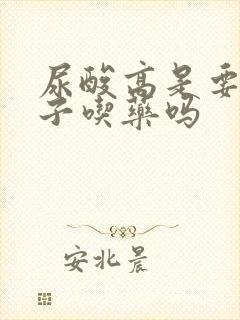 尿酸高是要
子喫藥吗
安北晨